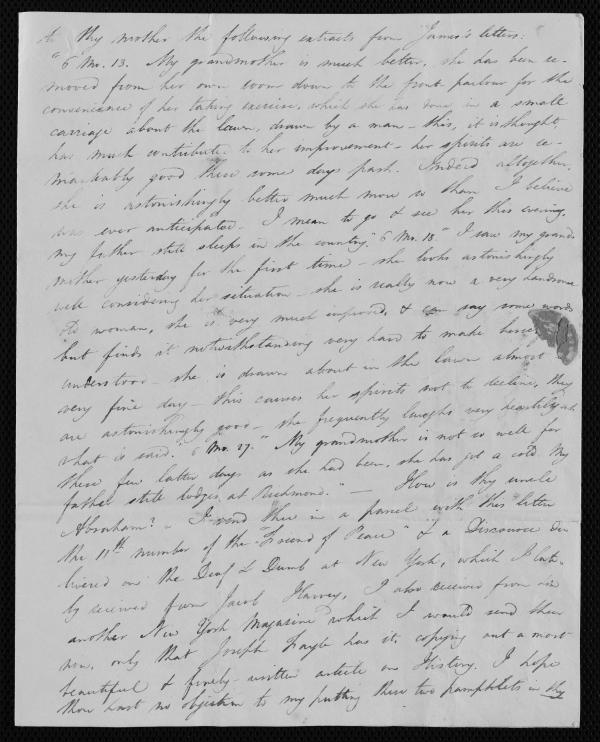 to thy mother the following extracts from James's letters:
"6 Mo. 13. My grandmother is much better, she has been re-
moved from her own room down to the front parlour for the
convenience of her taking exercise, which she has done, in a small
carriage about the lawn, drawn by a man – this, it is thought,
has much contributed to her improvement – her spirits are re-
markably good these some days past. Indeed altogether,
she is astonishingly better much more so than I believe
was ever anticipated – I mean to go & see her this evening,
my father still sleeps in the country." "6 Mo. 18." I saw my grand-
mother yesterday for the first time – she looks astonishingly
well considering her situation – she is really now a very handsome
old woman, she is very much improved, & can say some words
but finds it notwithstanding very hard to make herself
understood – she is drawn about in the lawn almost
every fine day – this causes her spirits not to decline, they
are astonishingly good – she frequently laughs very heartily at
what is said." "6 Mo. 27." My grandmother is not so well for
these few latter days as she had been, she has got a cold. My
father still lodges at Richmond." – How is thy uncle
Abraham? – I send thee in a parcel with this letter
the 11th number of the "Friend of Peace" & a Discourse de-
livered on the Deaf & Dumb at New York, which I late-
ly received from Jacob Harvey, I also received from him
another New York Magazine which I would send thee
now, only that Joseph has it, copying out a most
beautiful & finely-written article on History. I hope
thou hast no objection to my putting these two pamphlets in thy